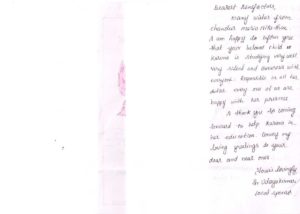 Dearest Benefactors,
Many wishes from
I am happy to inform you
that your beloved child
Karuna is studying very well.
Very silent and
everyone. Responsible in all her
duties. Every one of us are
happy with her presence.
I thank you for coming
forward to help Karuna in
her education. Convey my
loving greetings to your
dear and near ones.
Yours lovingly
Sr.
Local